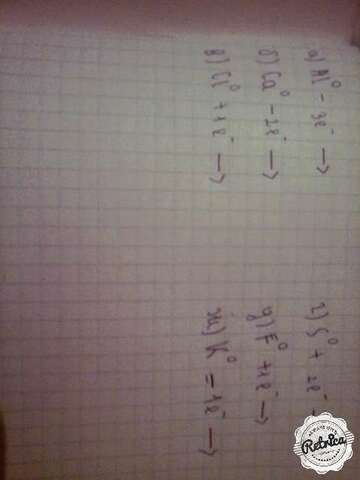 а) Al⁰ - 3e⁻ →
б) Ca⁰ - 2e⁻ →
в) Cl⁰ + 1e⁻ →
г) S⁰ + 2e⁻ →
д) F⁰ + 1e⁻ →
ж) K⁰ = 1e⁻ →
Retrica